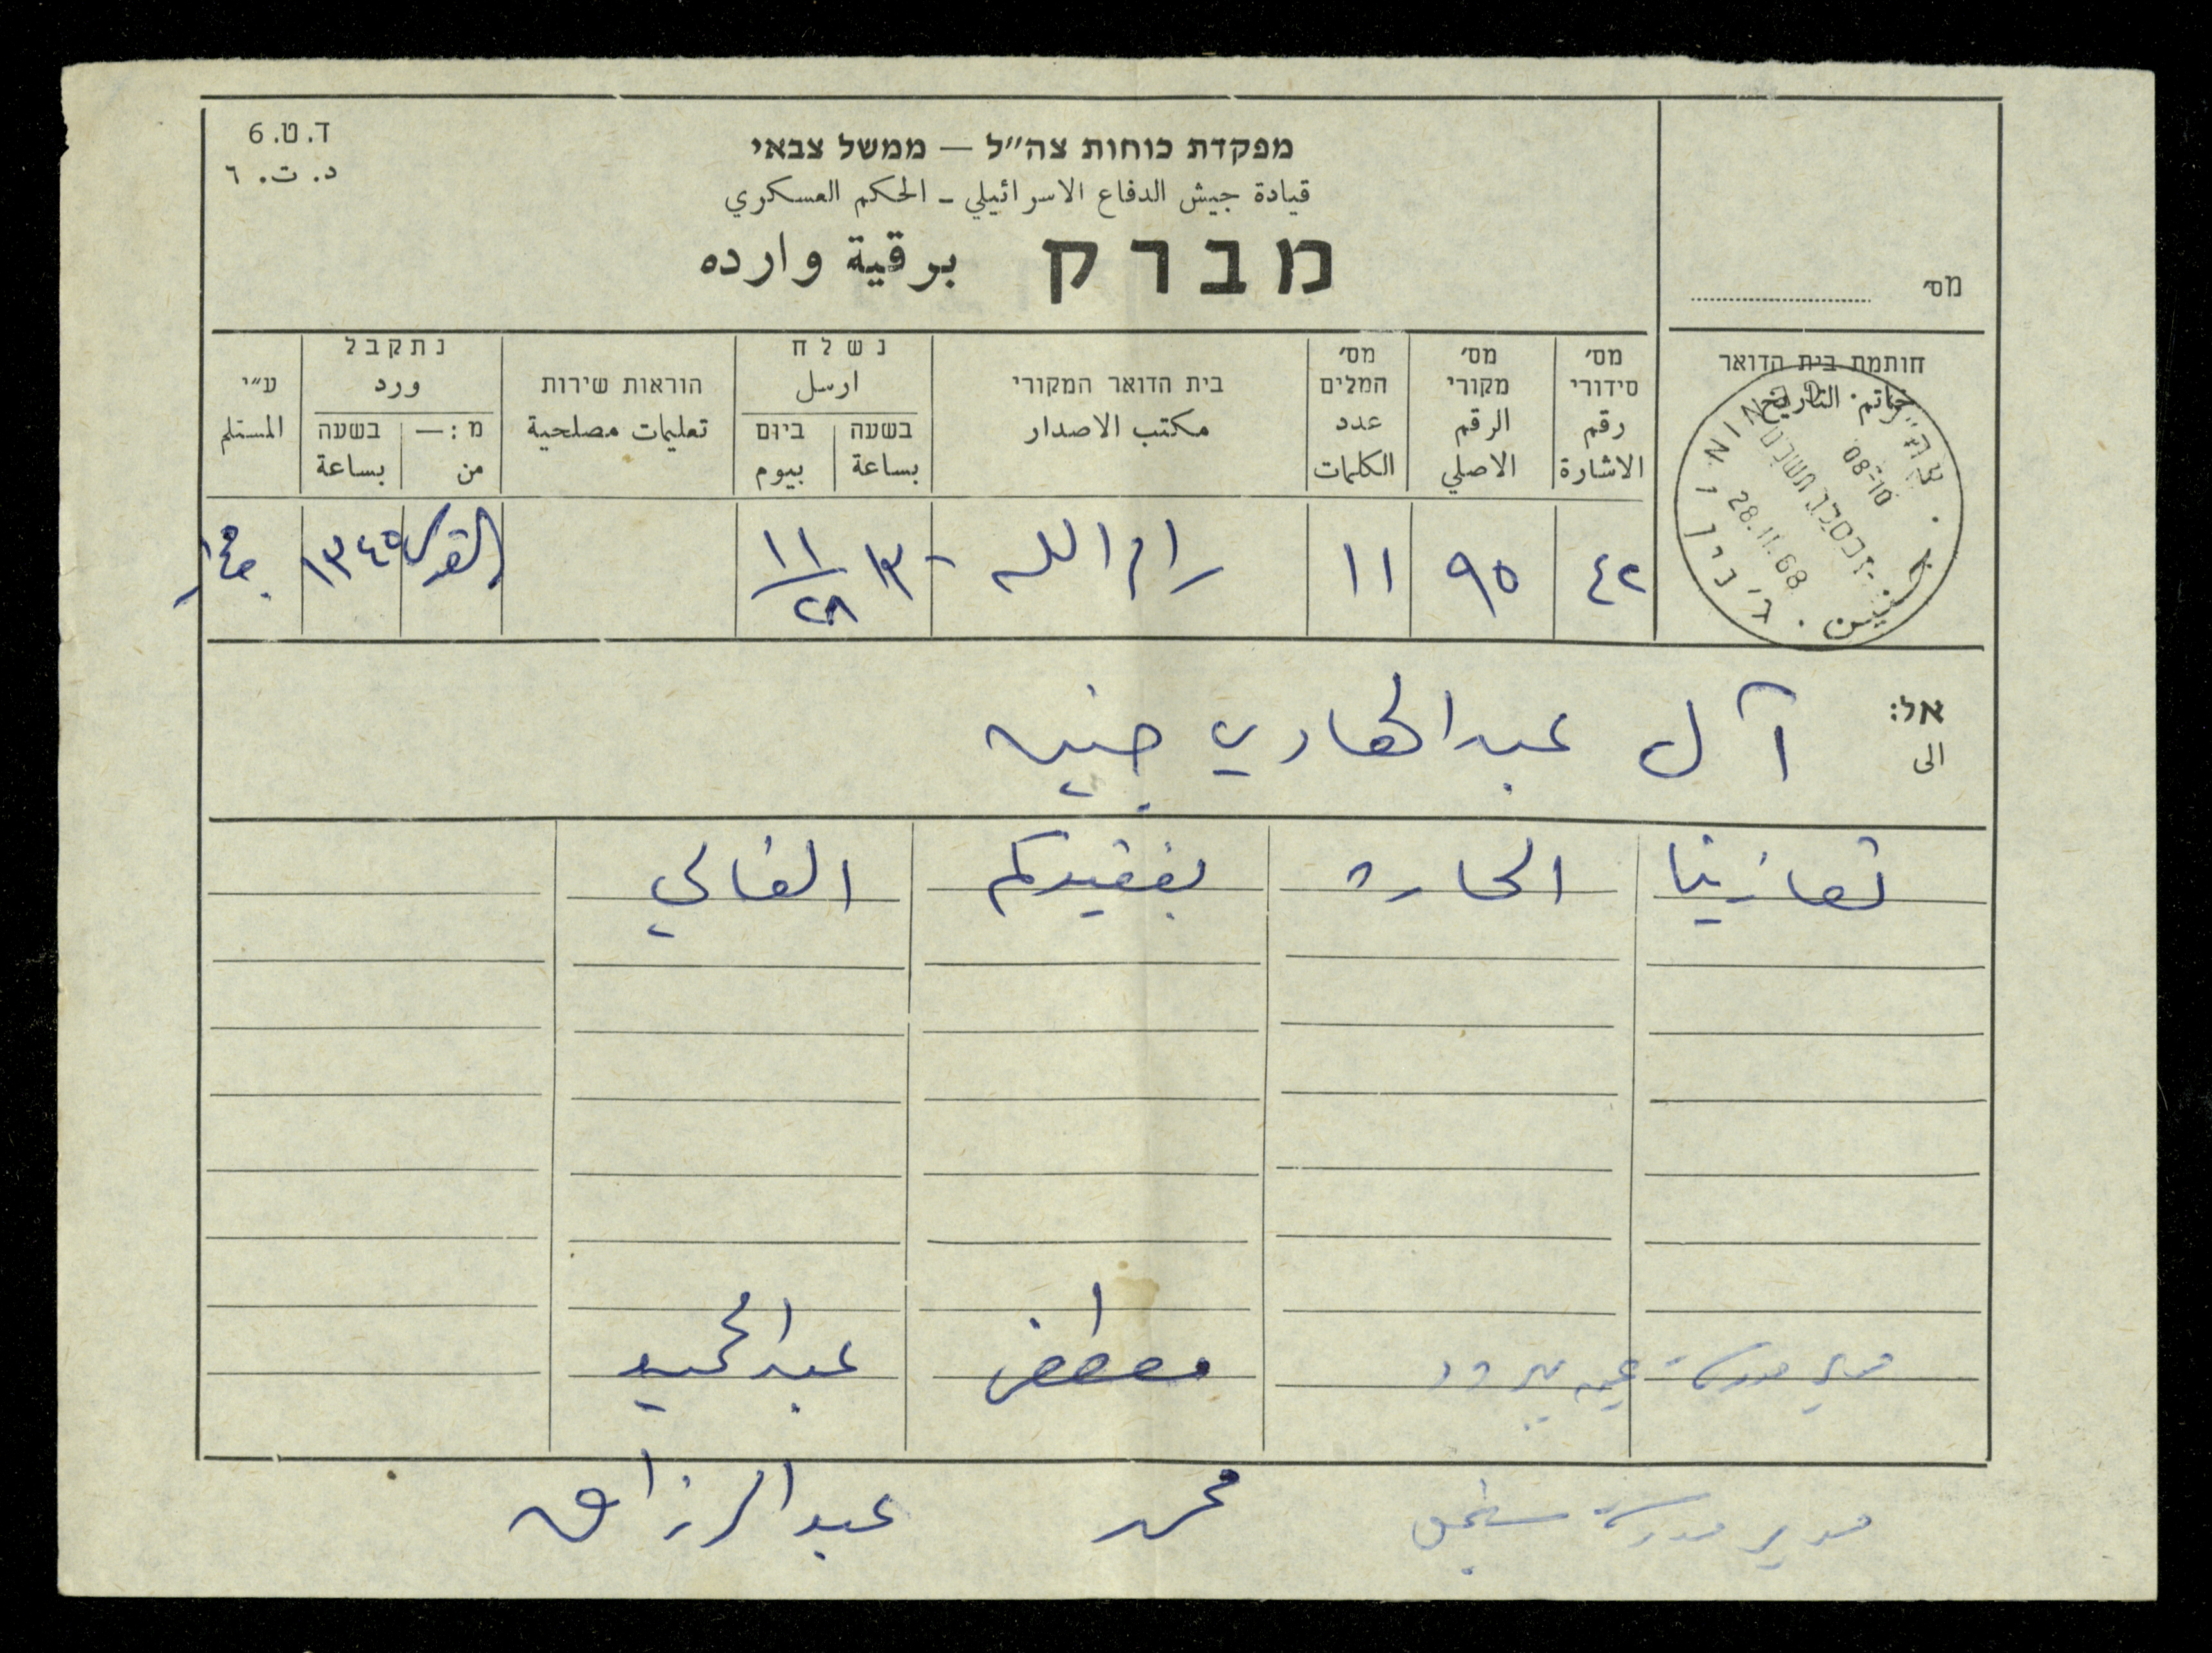 ד.ט.6
د. ت. ٦
מפקדת כוחות צה״ל — ממשל צבאי
قيادة جيش الدفاع الاسرائيلي ـ الحكم العسكري
מברק برقية وارده
מס׳
חותמת בית הדואר
خاتم التاريخ
מס׳ סידורי
رقم الاشارة
מס׳ מקורי
الرقم الاصلي
מס׳ המלים
عدد الكلمات
בית הדואר המקורי
مكتب الاصدار
נשלח
ارسل
בשעה
بساعة
ביום
بيوم
הוראות שירות
تعليمات مصلحية
נתקבל
ورد
מ: —
من
בשעה
بساعة
ע״י
المستلم
JENIN
08-10
28.11.68
ג׳נין
جنين
٤٢ ٩٥ ١١ رام الله ١٣٠٠ ١١/٢٨ القدس ١٣٤٥
אל:
الى
آل عبد الهادي جنين
تعازينا الحاره بفقيدكم الغالي
مدير مدرسة عين يبرود مصطفى عبد الحميد
مدير مدرسة سنجل محمد عبد الرزاق